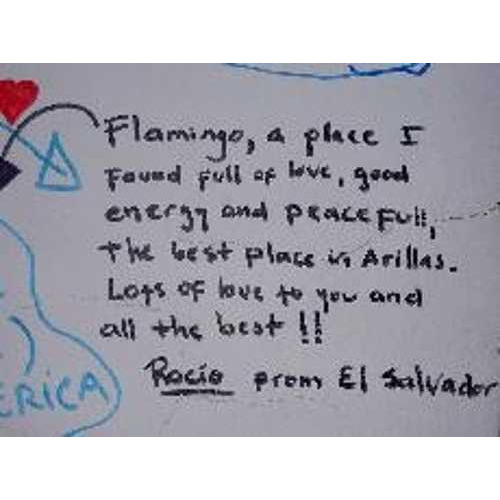 Flamingo, a place I
found full of love, good
energy and peacefull,
the best place in Arillas.
Lots of love to you and
all the best !!
Rocio from El Salvador
ERICA